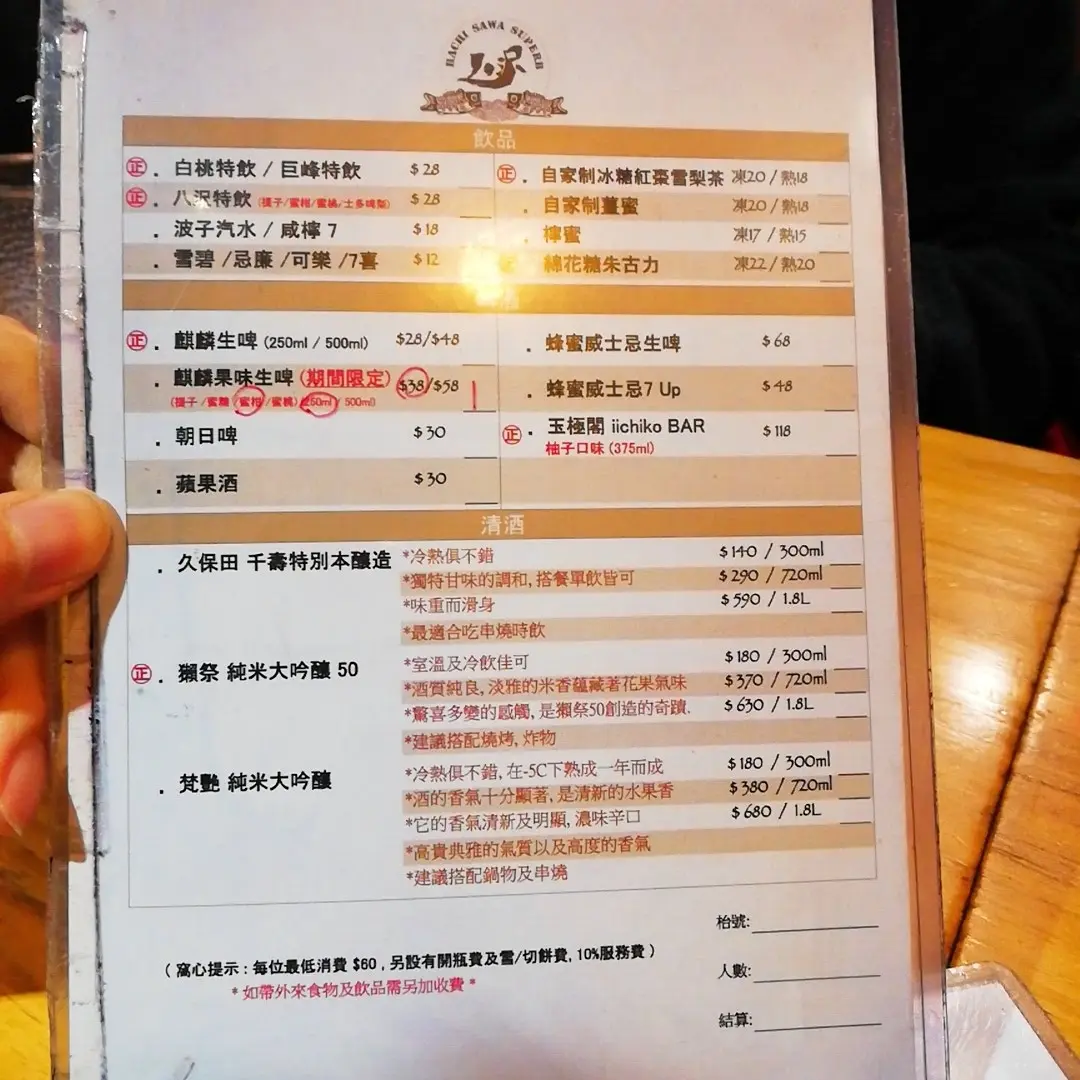 HACHI SAWA SUPERB
八沢
飲品
正 . 白桃特飲 / 巨峰特飲 $28
正 . 八沢特飲 (提子/蜜柑/蜜桃/士多啤梨) $28
. 波子汽水 / 咸檸 7 $18
. 雪碧 /忌廉 /可樂 /7喜 $12
正 . 自家制冰糖紅棗雪梨茶 凍20 / 熱18
. 自家制薑蜜 凍20 / 熱18
. 檸蜜 凍17 / 熱15
綿花糖朱古力 凍22 / 熱20
正 . 麒麟生啤 (250ml / 500ml) $28/$48
. 麒麟果味生啤 (期間限定) $38/$58
(提子 /蜜糖 /蜜柑 /蜜桃) (250ml / 500ml)
. 朝日啤 $30
. 蘋果酒 $30
. 蜂蜜威士忌生啤 $68
. 蜂蜜威士忌7 Up $48
正 . 玉極閣 iichiko BAR $118
柚子口味 (375ml)
清酒
. 久保田 千壽特別本釀造 *冷熱俱不錯 $140 / 300ml
*獨特甘味的調和, 搭餐單飲皆可 $290 / 720ml
*味重而滑身 $590 / 1.8L
*最適合吃串燒時飲
正 . 獺祭 純米大吟釀 50 *室溫及冷飲佳可 $180 / 300ml
*酒質純良, 淡雅的米香蘊藏著花果氣味 $370 / 720ml
*驚喜多變的感觸, 是獺祭50創造的奇蹟. $630 / 1.8L
*建議搭配燒烤, 炸物
. 梵艷 純米大吟釀 *冷熱俱不錯, 在-5C下熟成一年而成 $180 / 300ml
*酒的香氣十分顯著, 是清新的水果香 $380 / 720ml
*它的香氣清新及明顯, 濃味辛口 $680 / 1.8L
*高貴典雅的氣質以及高度的香氣
*建議搭配鍋物及串燒
枱號:
( 窩心提示 : 每位最低消費 $60 , 另設有開瓶費及雪/切餅費, 10%服務費 )
* 如帶外來食物及飲品需另加收費 *
人數:
結算: